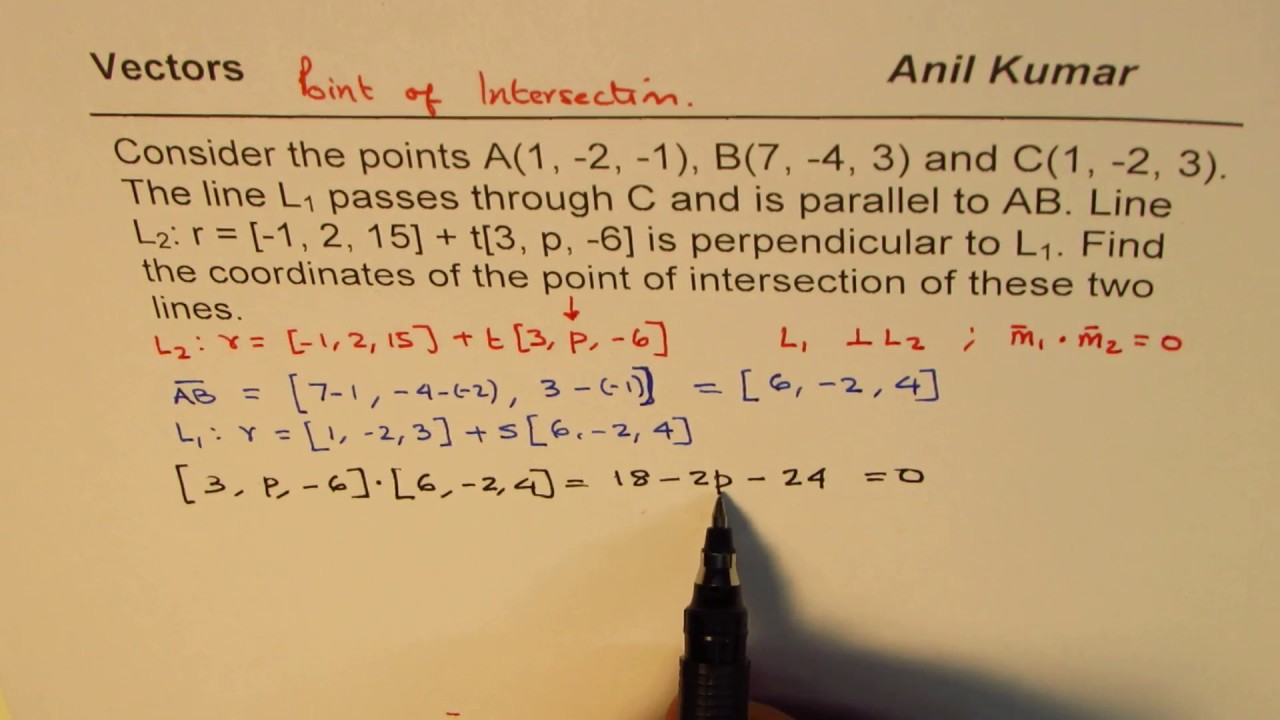 Vectors Point of Intersection. Anil Kumar
Consider the points A(1, -2, -1), B(7, -4, 3) and C(1, -2, 3).
The line L₁ passes through C and is parallel to AB. Line
L₂: r = [-1, 2, 15] + t[3, p, -6] is perpendicular to L₁. Find
the coordinates of the point of intersection of these two
lines.
L₂: r = [-1, 2, 15] + t [3, p, -6] L₁ ⊥ L₂ ; m̄₁ · m̄₂ = 0
A̅B̅ = [7-1, -4-(-2), 3-(-1)] = [6, -2, 4]
L₁: r = [1, -2, 3] + s[6, -2, 4]
[3, p, -6]·[6, -2, 4] = 18 - 2p - 24 = 0